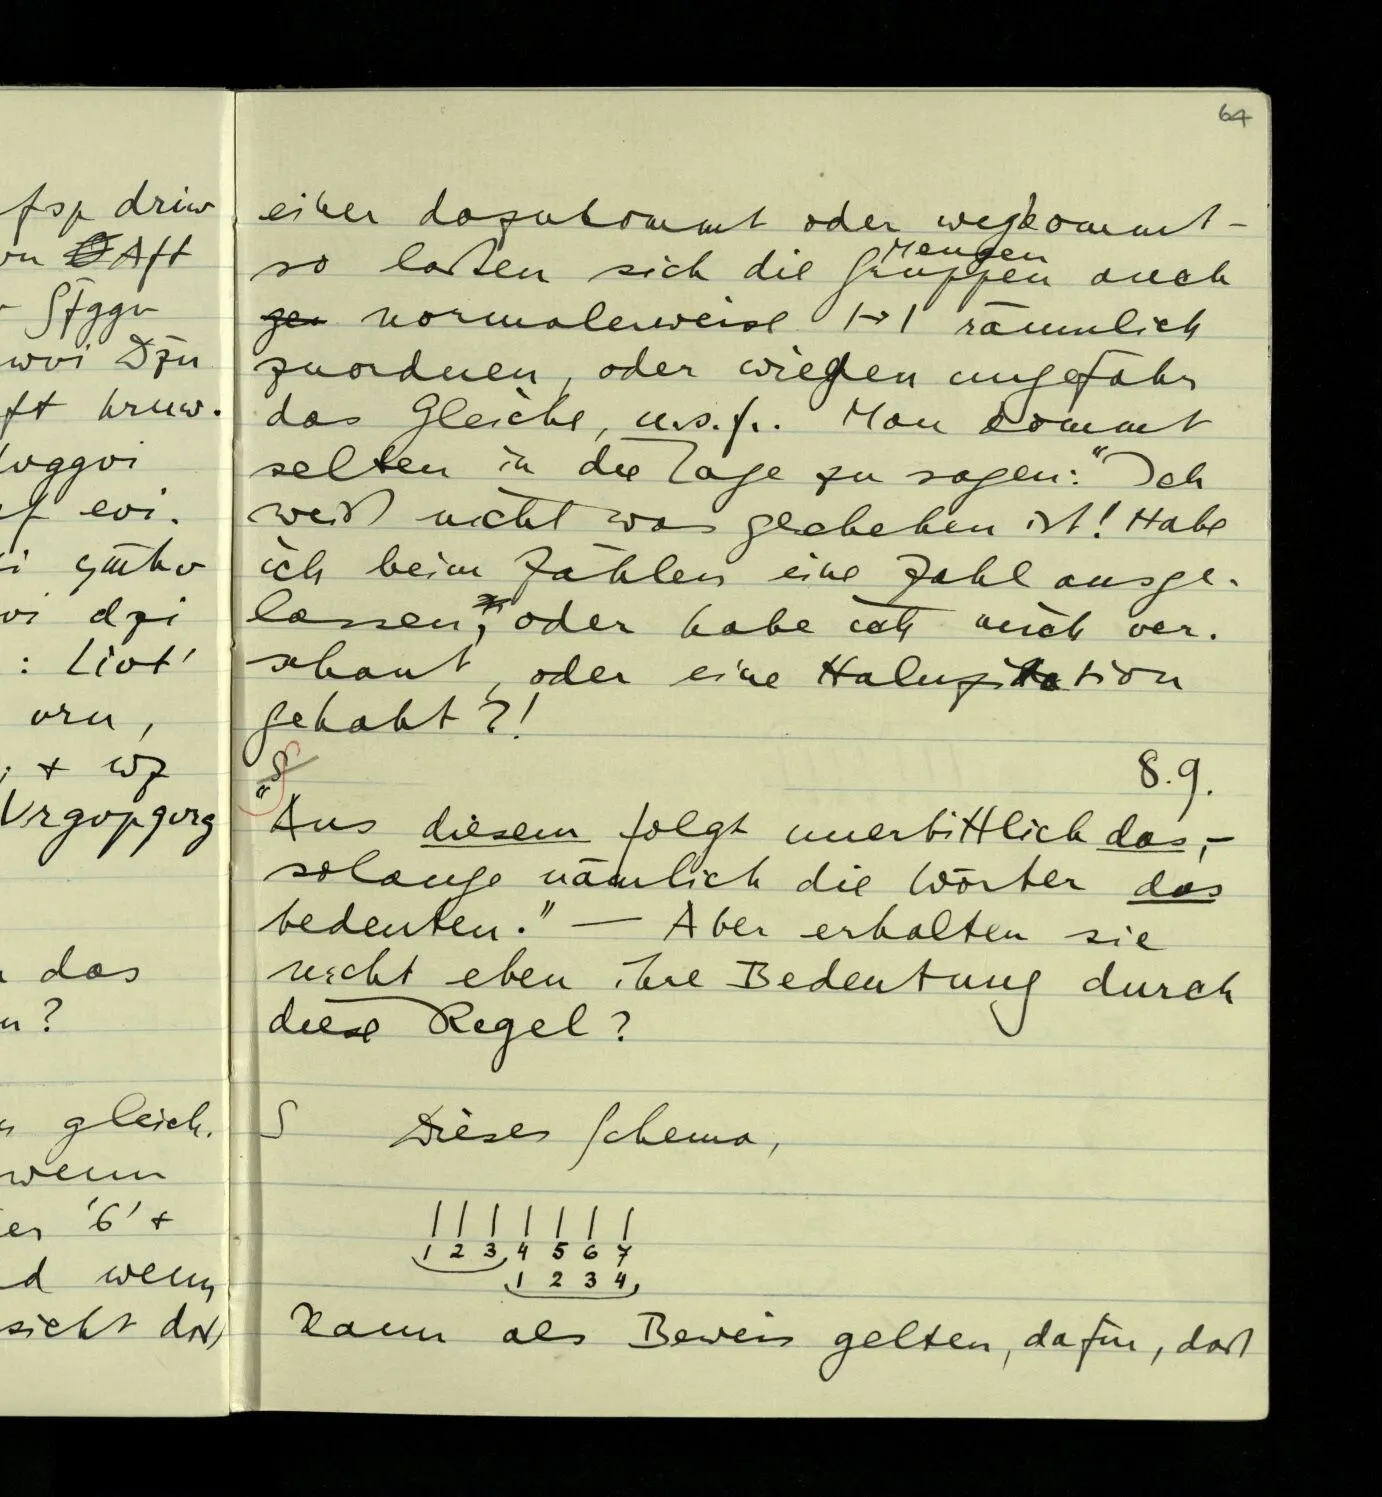 64
fsp driw
Aft
wvi Dzu
ft hruw.
evi.
vi dzi
: Livt'
vru,
; + wz
Vrgvpgvrg
das
?
gleich.
wenn
'6' +
wenn
sieht daß,
einer dazukommt oder wegkommt –
so laßen sich die Gruppen Mengen auch
normalerweise 1→1 räumlich
zuordnen, oder wiegen ungefähr
das Gleiche, u.s.f.. Man kommt
selten in die Lage zu sagen: "Ich
weiß nicht was geschehen ist! Habe
ich beim Zählen eine Zahl ausge-
lassen, oder habe ich mich ver-
schaut, oder eine Haluzination
gehabt?!
8.9.
S
"Aus diesem folgt unerbittlich das, –
solange nämlich die Wörter das
bedeuten." — Aber erhalten sie
nicht eben ihre Bedeutung durch
diese Regel?
S Dieses Schema,
| | | | | | |
1 2 3 4 5 6 7
1 2 3 4
kann als Beweis gelten, dafür, daß